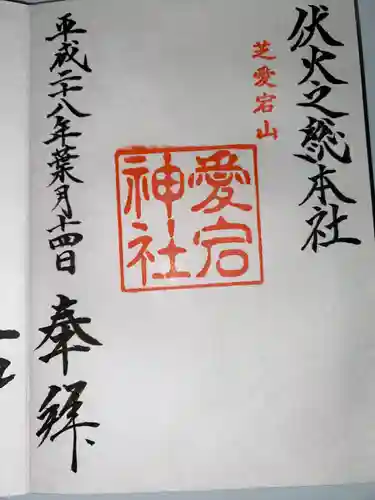 伏火之総本社
芝愛宕山
愛宕
神社
平成二十八年葉月十四日
奉拝